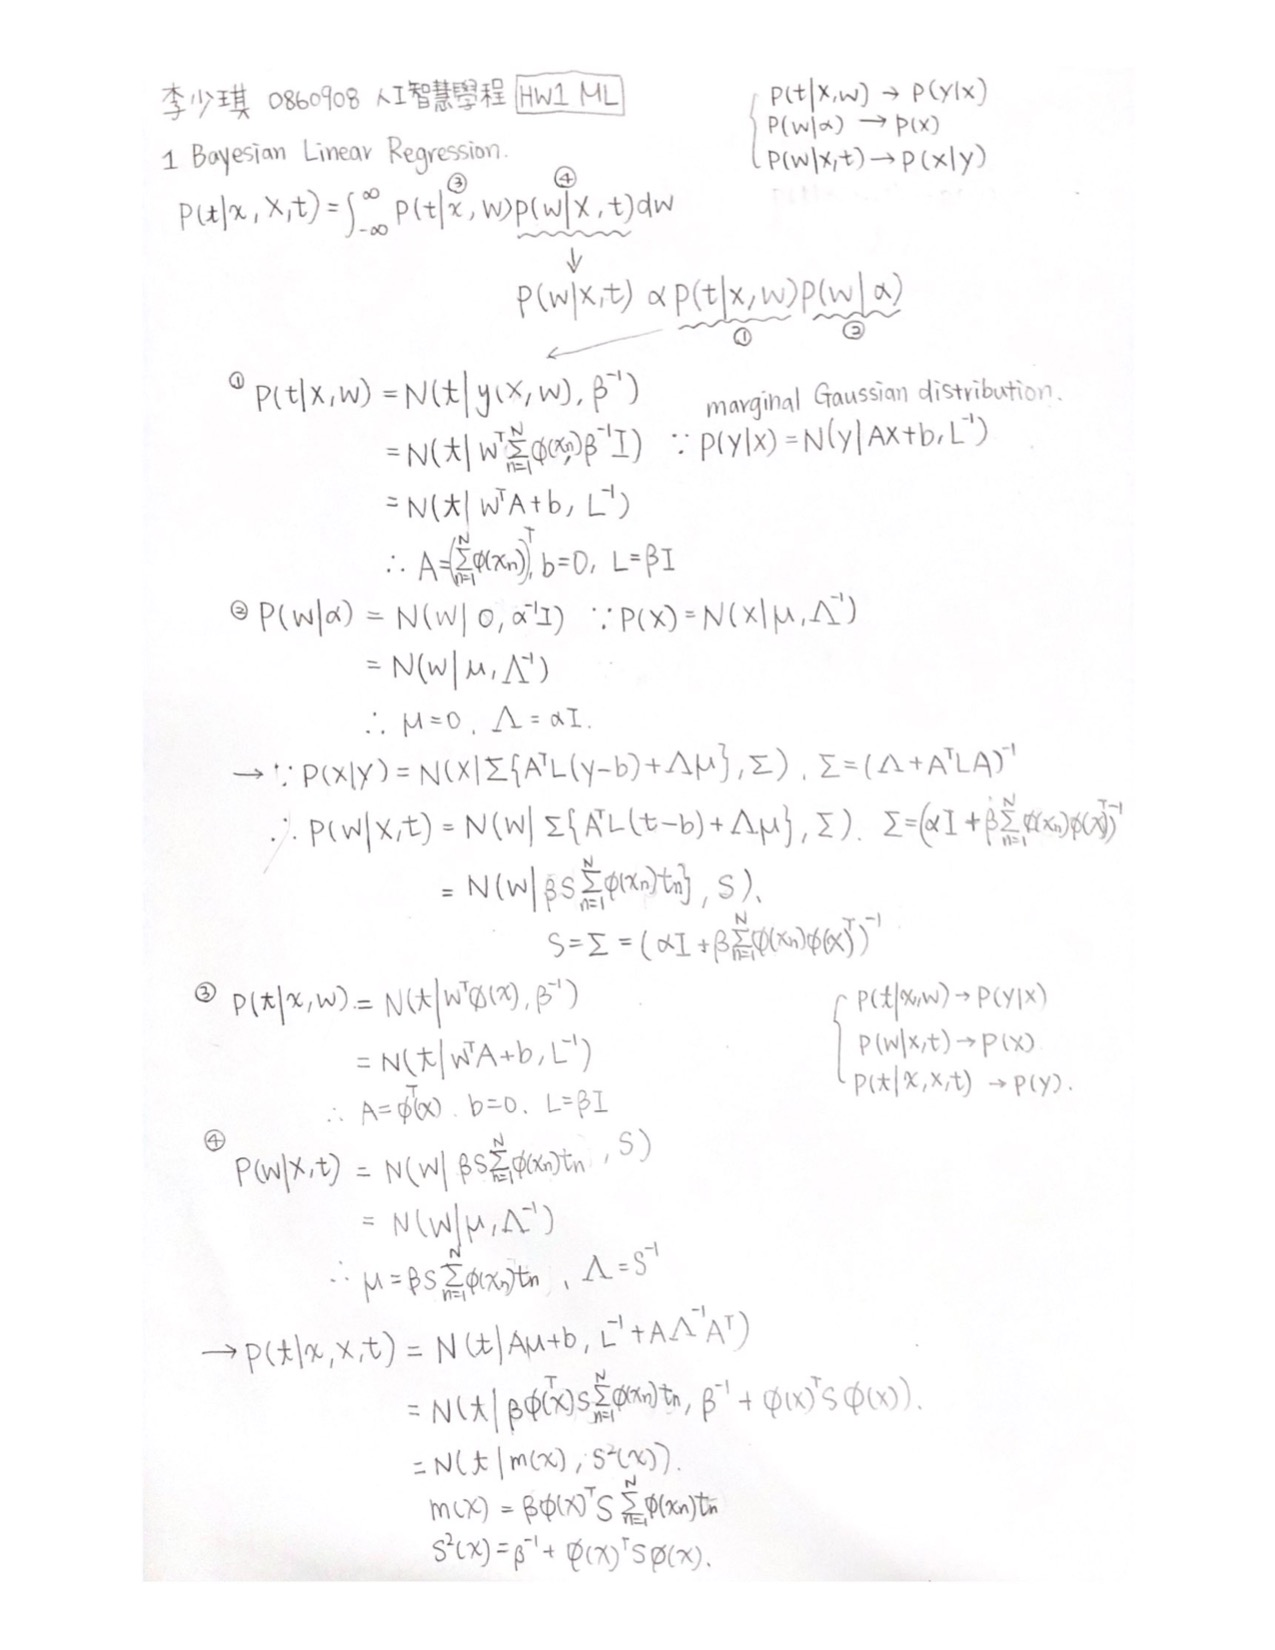 李少琪 0860908 人工智慧學程 HW1 ML
P(t|x,w) → P(y|x)
P(w|α) → P(x)
P(w|x,t) → P(x|y)
1 Bayesian Linear Regression.
P(t|x, X, t) = ∫_{-∞}^{∞} P(t|x, w) P(w|X, t) dw
③ ④
↓
P(w|X,t) ∝ P(t|x,w) P(w|α)
① ②
① P(t|X,w) = N(t|y(X,w), β⁻¹)
marginal Gaussian distribution.
= N(t| wᵀ Σ_{n=1}^{N} φ(xn), β⁻¹I) ∵ P(y|x) = N(y|Ax+b, L⁻¹)
= N(t| wᵀA+b, L⁻¹)
∴ A=(Σ_{n=1}^{N} φ(xn))ᵀ, b=0, L=βI
② P(w|α) = N(w| 0, α⁻¹I) ∵ P(x) = N(x|μ, Λ⁻¹)
= N(w|μ, Λ⁻¹)
∴ μ=0, Λ=αI.
→ ∵ P(x|y) = N(x|Σ{AᵀL(y-b)+Λμ}, Σ), Σ=(Λ+AᵀLA)⁻¹
∴ P(w|x,t) = N(w| Σ{AᵀL(t-b)+Λμ}, Σ). Σ=(αI + β Σ_{n=1}^{N} φ(xn)φ(x)ᵀ)⁻¹
= N(w| βS Σ_{n=1}^{N} φ(xn)tn}, S).
S=Σ = (αI + β Σ_{n=1}^{N} φ(xn)φ(x)ᵀ)⁻¹
③ P(t|x,w) = N(t|wᵀφ(x), β⁻¹)
P(t|x,w) → P(y|x)
= N(t|wᵀA+b, L⁻¹)
P(w|x,t) → P(x)
∴ A=φᵀ(x). b=0. L=βI
P(t|x,x,t) → P(y).
④ P(w|X,t) = N(w| βS Σ_{n=1}^{N} φ(xn)tn, S)
= N(w|μ, Λ⁻¹)
∴ μ=βS Σ_{n=1}^{N} φ(xn)tn, Λ=S⁻¹
→ P(t|x,x,t) = N(t|Aμ+b, L⁻¹+AΛ⁻¹Aᵀ)
= N(t| βφᵀ(x)S Σ_{n=1}^{N} φ(xn)tn, β⁻¹ + φ(x)ᵀSφ(x)).
= N(t|m(x), S²(x)).
m(x) = βφ(x)ᵀS Σ_{n=1}^{N} φ(xn)tn
S²(x)=β⁻¹ + φ(x)ᵀSφ(x).